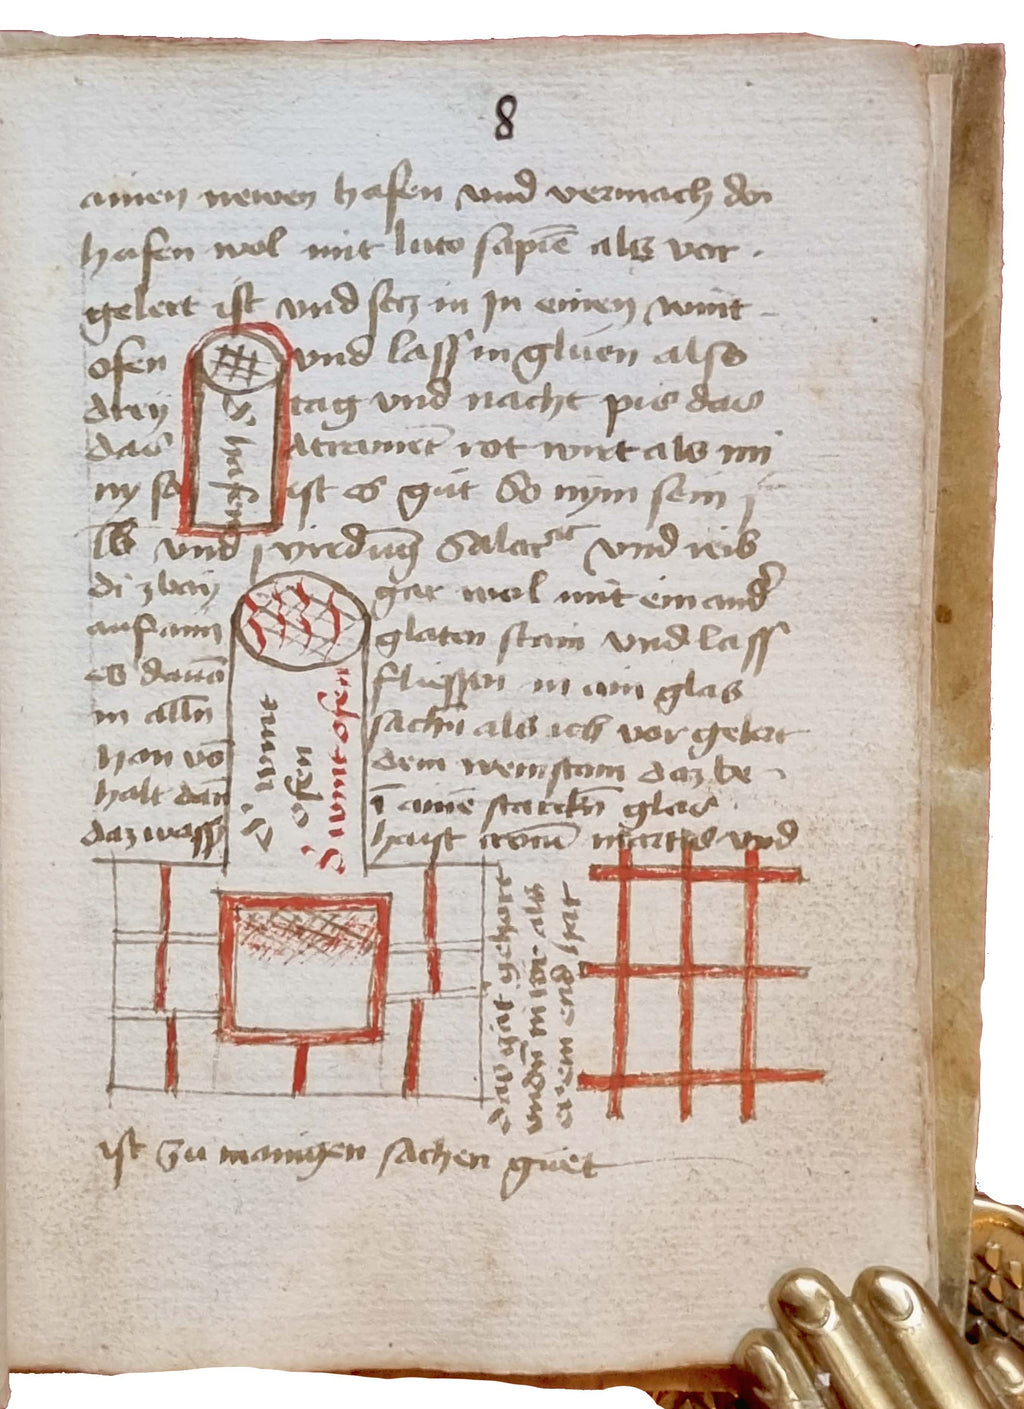 8
ainen newen hafen vnd vermach den
hafen wol mit luto sapiē als vor
gelert ist vnd secz in In einen wint
ofen vnd lass in gluen also
drey tag vnd nacht pis das
das Atrament rot wirt als mi
ny so ist es gut So nym sein j
lb vnd j virdūg Salar vnd reib
di zway gar wol mit ein and
auf ainē glaten stain vnd lass
es dauō fliessen in ain glas
in alln̄ sachn̄ als ich vor gelert
han vō dem weinstain daz be
halt dan̄ ī aine starckn̄ glas
daz wass haist crocū martis vnd
d' wint
ofen
d' wint ofen
das gat gehort
vndn̄ in als
end hat
ist zu manigen sachen guet